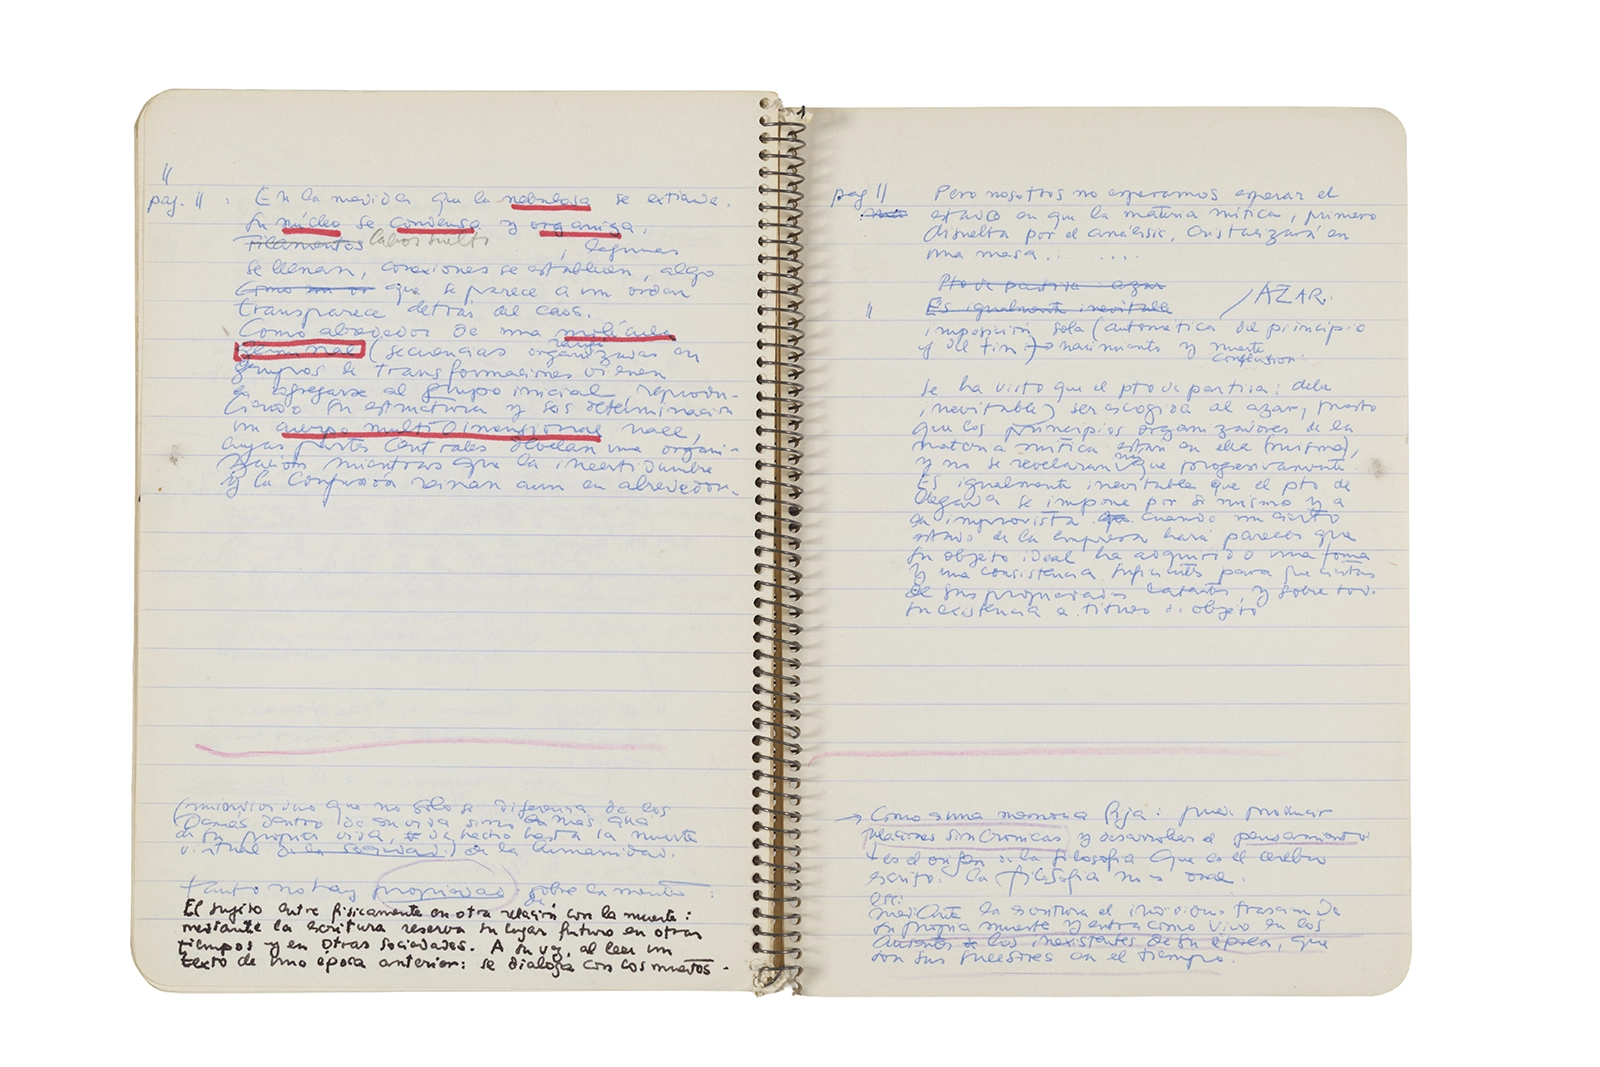 "
pag. 11 : En la medida que la nebulosa se extiende.
Su núcleo se condensa y organiza.
Filamentos cabos sueltos , lagunas
se llenan, conexiones se establecen, algo
que se parece a un orden
transparece detras del caos.
Como alrededor de una molécula
germinal (secuencias organizadas en
grupos de transformaciones vienen
a agregarse al grupo inicial, reprodu-
ciendo su estructura y sus determinacion
un cuerpo multidimensional nace,
cuyas partes centrales develan una organi-
zación mientras que la incertidumbre
y la confusión reinan aun en alrededor.
(individuo que no sólo se diferencia de los
demás dentro de su vida sino en más allá
de su propia vida, de hecho hasta la muerte
virtual de la sociedad) de la humanidad.
tanto no hay propiedad sobre la muerte:
El sujeto entre fisicamente en otra relación con la muerte:
mediante la escritura reserva su lugar futuro en otros
tiempos y en otras sociedades. A su vez, al leer un
texto de una época anterior: se dialoga con los muertos.
pag 11 Pero nosotros no esperamos esperar el
estado en que la materia mítica, primero
disuelta por el análisis, cristalizará en
una masa ........
Pto de partida: azar
" Es igualmente inevitable / AZAR.
imposición sola (automática del principio
y del fin) → nacimiento y muerte
confusion:
Se ha visto que el pto de partida: debe
inevitable) ser escogida al azar, puesto
que los principios organizadores de la
materia mítica están en ella (misma),
y no se revelaran mas que progresivamente.
Es igualmente inevitable que el pto de
llegada se impone por si mismo y a
la improvista cuando un cierto
estado de la empresa hará parecer que
su objeto ideal ha adquirido una forma
y una consistencia suficientes para que ciertas
de sus propiedades latentes, y sobre todo
su existencia a titulo de objeto
→ Como a una memoria fija: puede producir
relaciones sincronicas y desarrollar el pensamiento
+ es el origen de la filosofia que es el cerebro
escrito. la filosofia no es oral.
mediante la escritura el individuo trasciende
su propia muerte y entra como vivo en los
ausentes los inexistentes de su época, que
son sus sucesores en el tiempo.